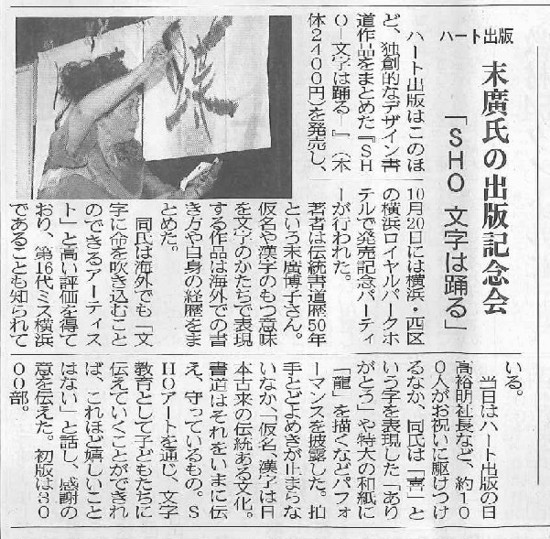 ハート出版
末廣氏の出版記念会
「SHO 文字は踊る」
ハート出版はこのほ
ど、独創的なデザイン書
道作品をまとめた『SH
O―文字は踊る―』(本
体2400円)を発売し、
10月20日には横浜・西区
の横浜ロイヤルパークホ
テルで発売記念パーティ
ーが行われた。
著者は伝統書道歴50年
という末廣博子さん。
仮名や漢字のもつ意味
を文字のかたちで表現
する作品は海外での書
き方や自身の経歴をま
とめた。
同氏は海外でも「文
字に命を吹き込むこと
のできるアーティス
ト」と高い評価を得て
おり、第16代ミス横浜
であることも知られて
いる。
当日はハート出版の日
高裕明社長など、約10
0人がお祝いに駆けつけ
るなか、同氏は「喜」と
いう字を表現した「あり
がとう」や特大の和紙に
「龍」を描くなどパフォ
ーマンスを披露した。拍
手とどよめきが止まらな
いなか、「仮名、漢字は日
本古来の伝統ある文化。
書道はそれをいまに伝
え、守っているもの。S
HOアートを通じ、文字
教育として子どもたちに
伝えていくことができれ
ば、これほど嬉しいこと
はない」と話し、感謝の
意を伝えた。初版は30
00部。